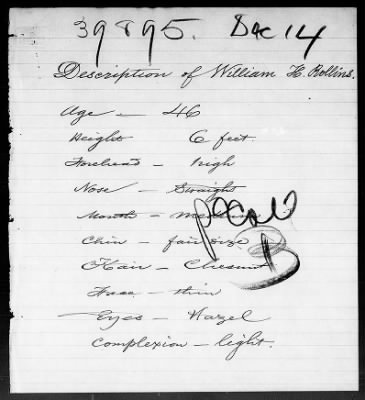 39895. Dec 14
Description of William H. Rollins.
Age — 46
Height 6 feet.
Forehead — high
Nose — Straight
Mouth — Medium
Chin — fair size
Hair — Chesnut
Face — thin
Eyes — Hazel
Complexion — light.
B